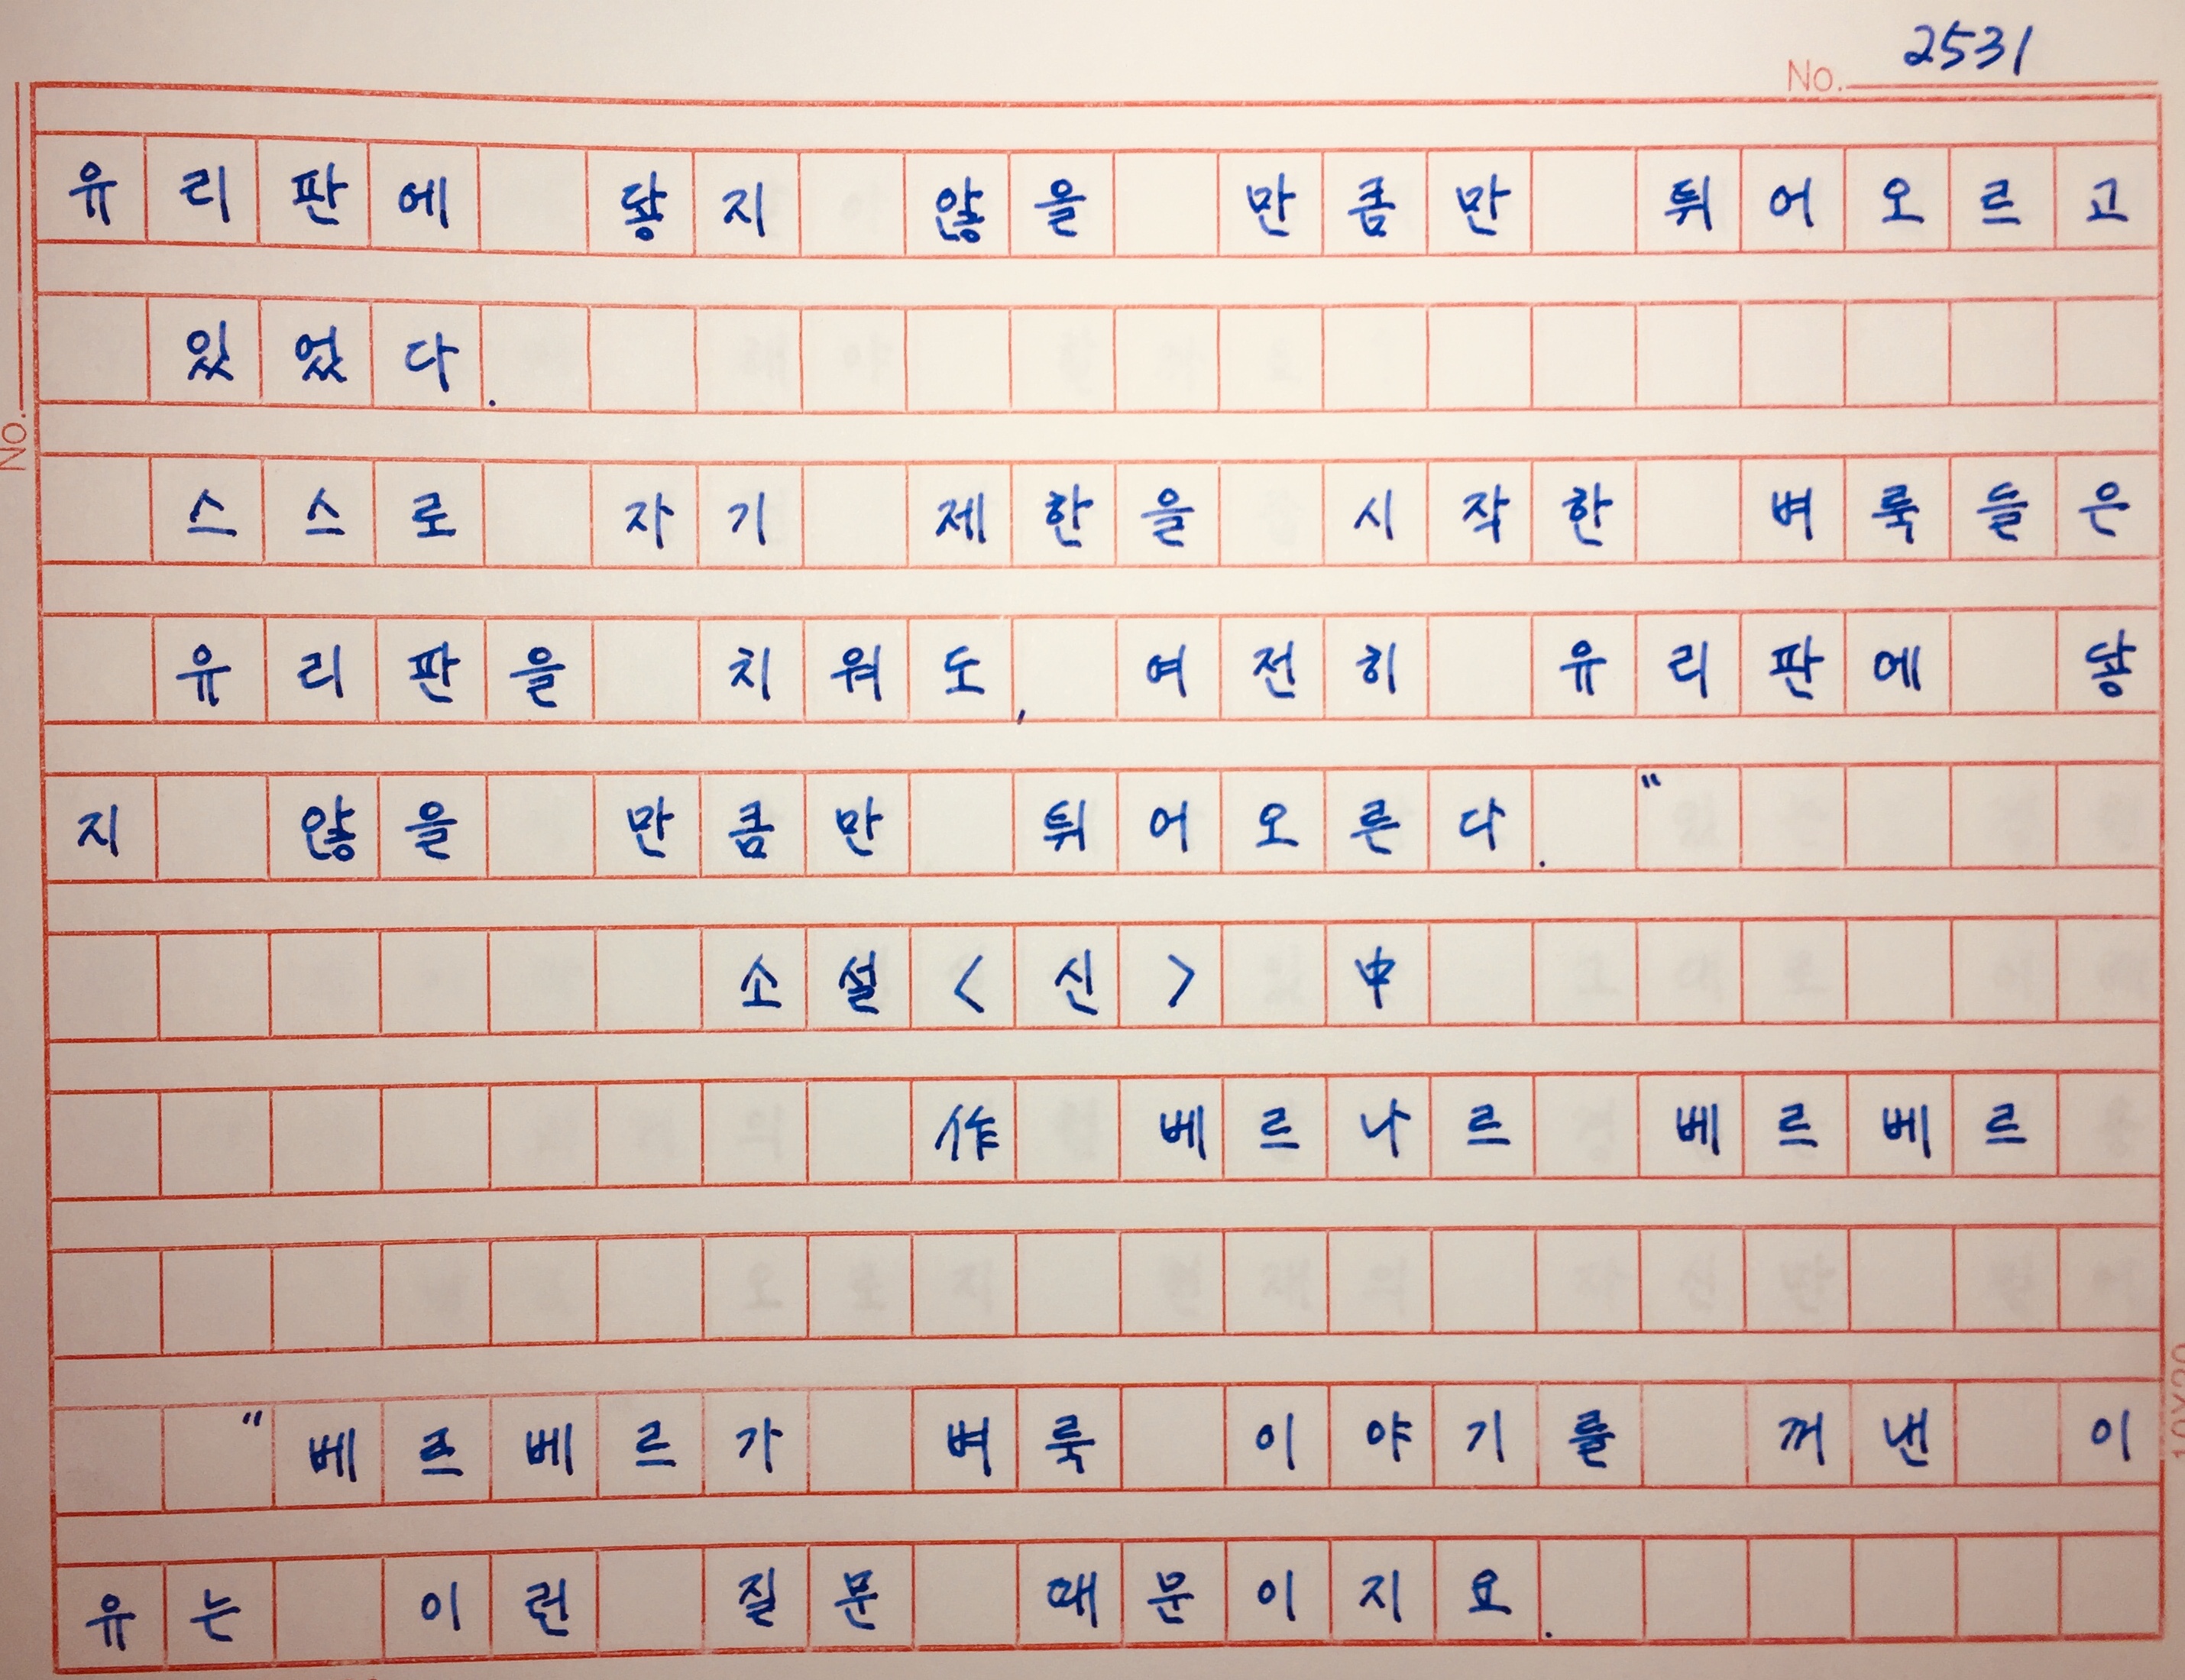 No. 2531
유리판에 닿지 않을 만큼만 튀어오르고
있었다.
스스로 자기 제한을 시작한 벼룩들은
유리판을 치워도, 여전히 유리판에 닿
지 않을 만큼만 튀어오른다."
소설<신> 中
作 베르나르 베르베르
"베르베르가 벼룩 이야기를 꺼낸 이
유는 이런 질문 때문이지요.
No.
10X20